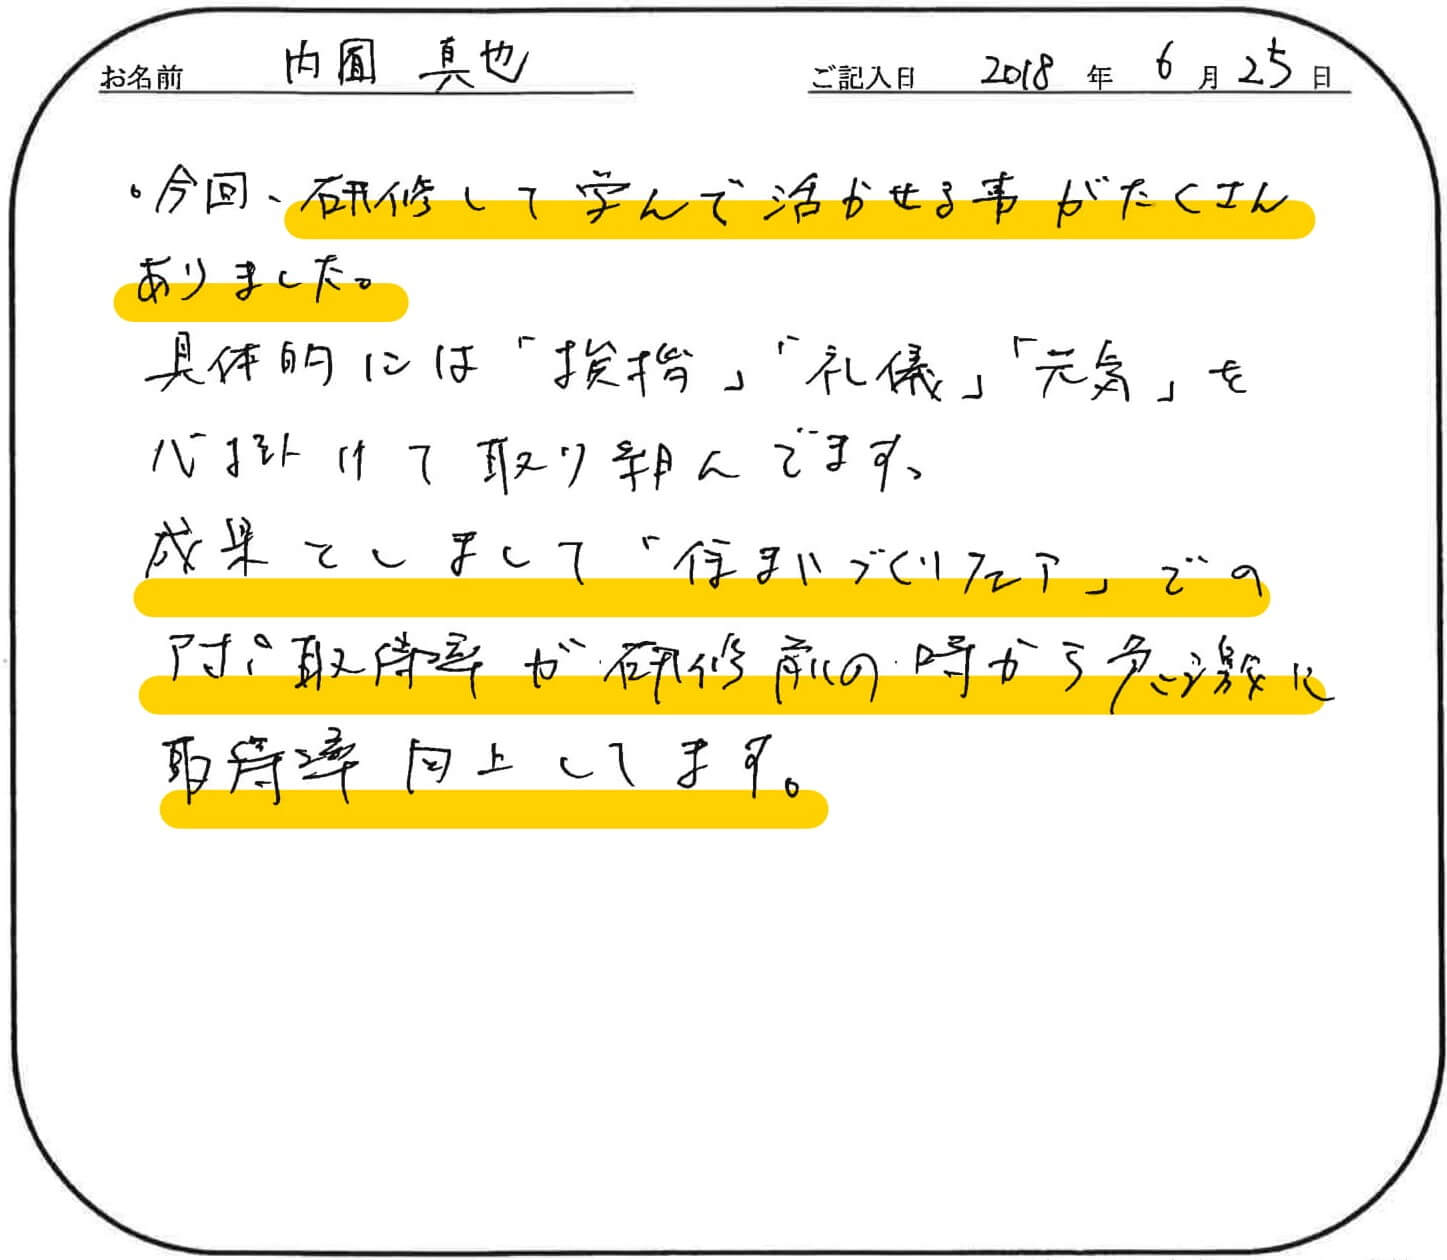 お名前 内圓 真也 ご記入日 2018 年 6 月 25 日
・今回、研修して学んで活かせる事がたくさん
ありました。
具体的には「挨拶」「礼儀」「元気」を
心掛けて取り組んでます。
成果としまして「住まいづくりフェア」での
アポ取得率が研修前の時から急激に
取得率向上してます。